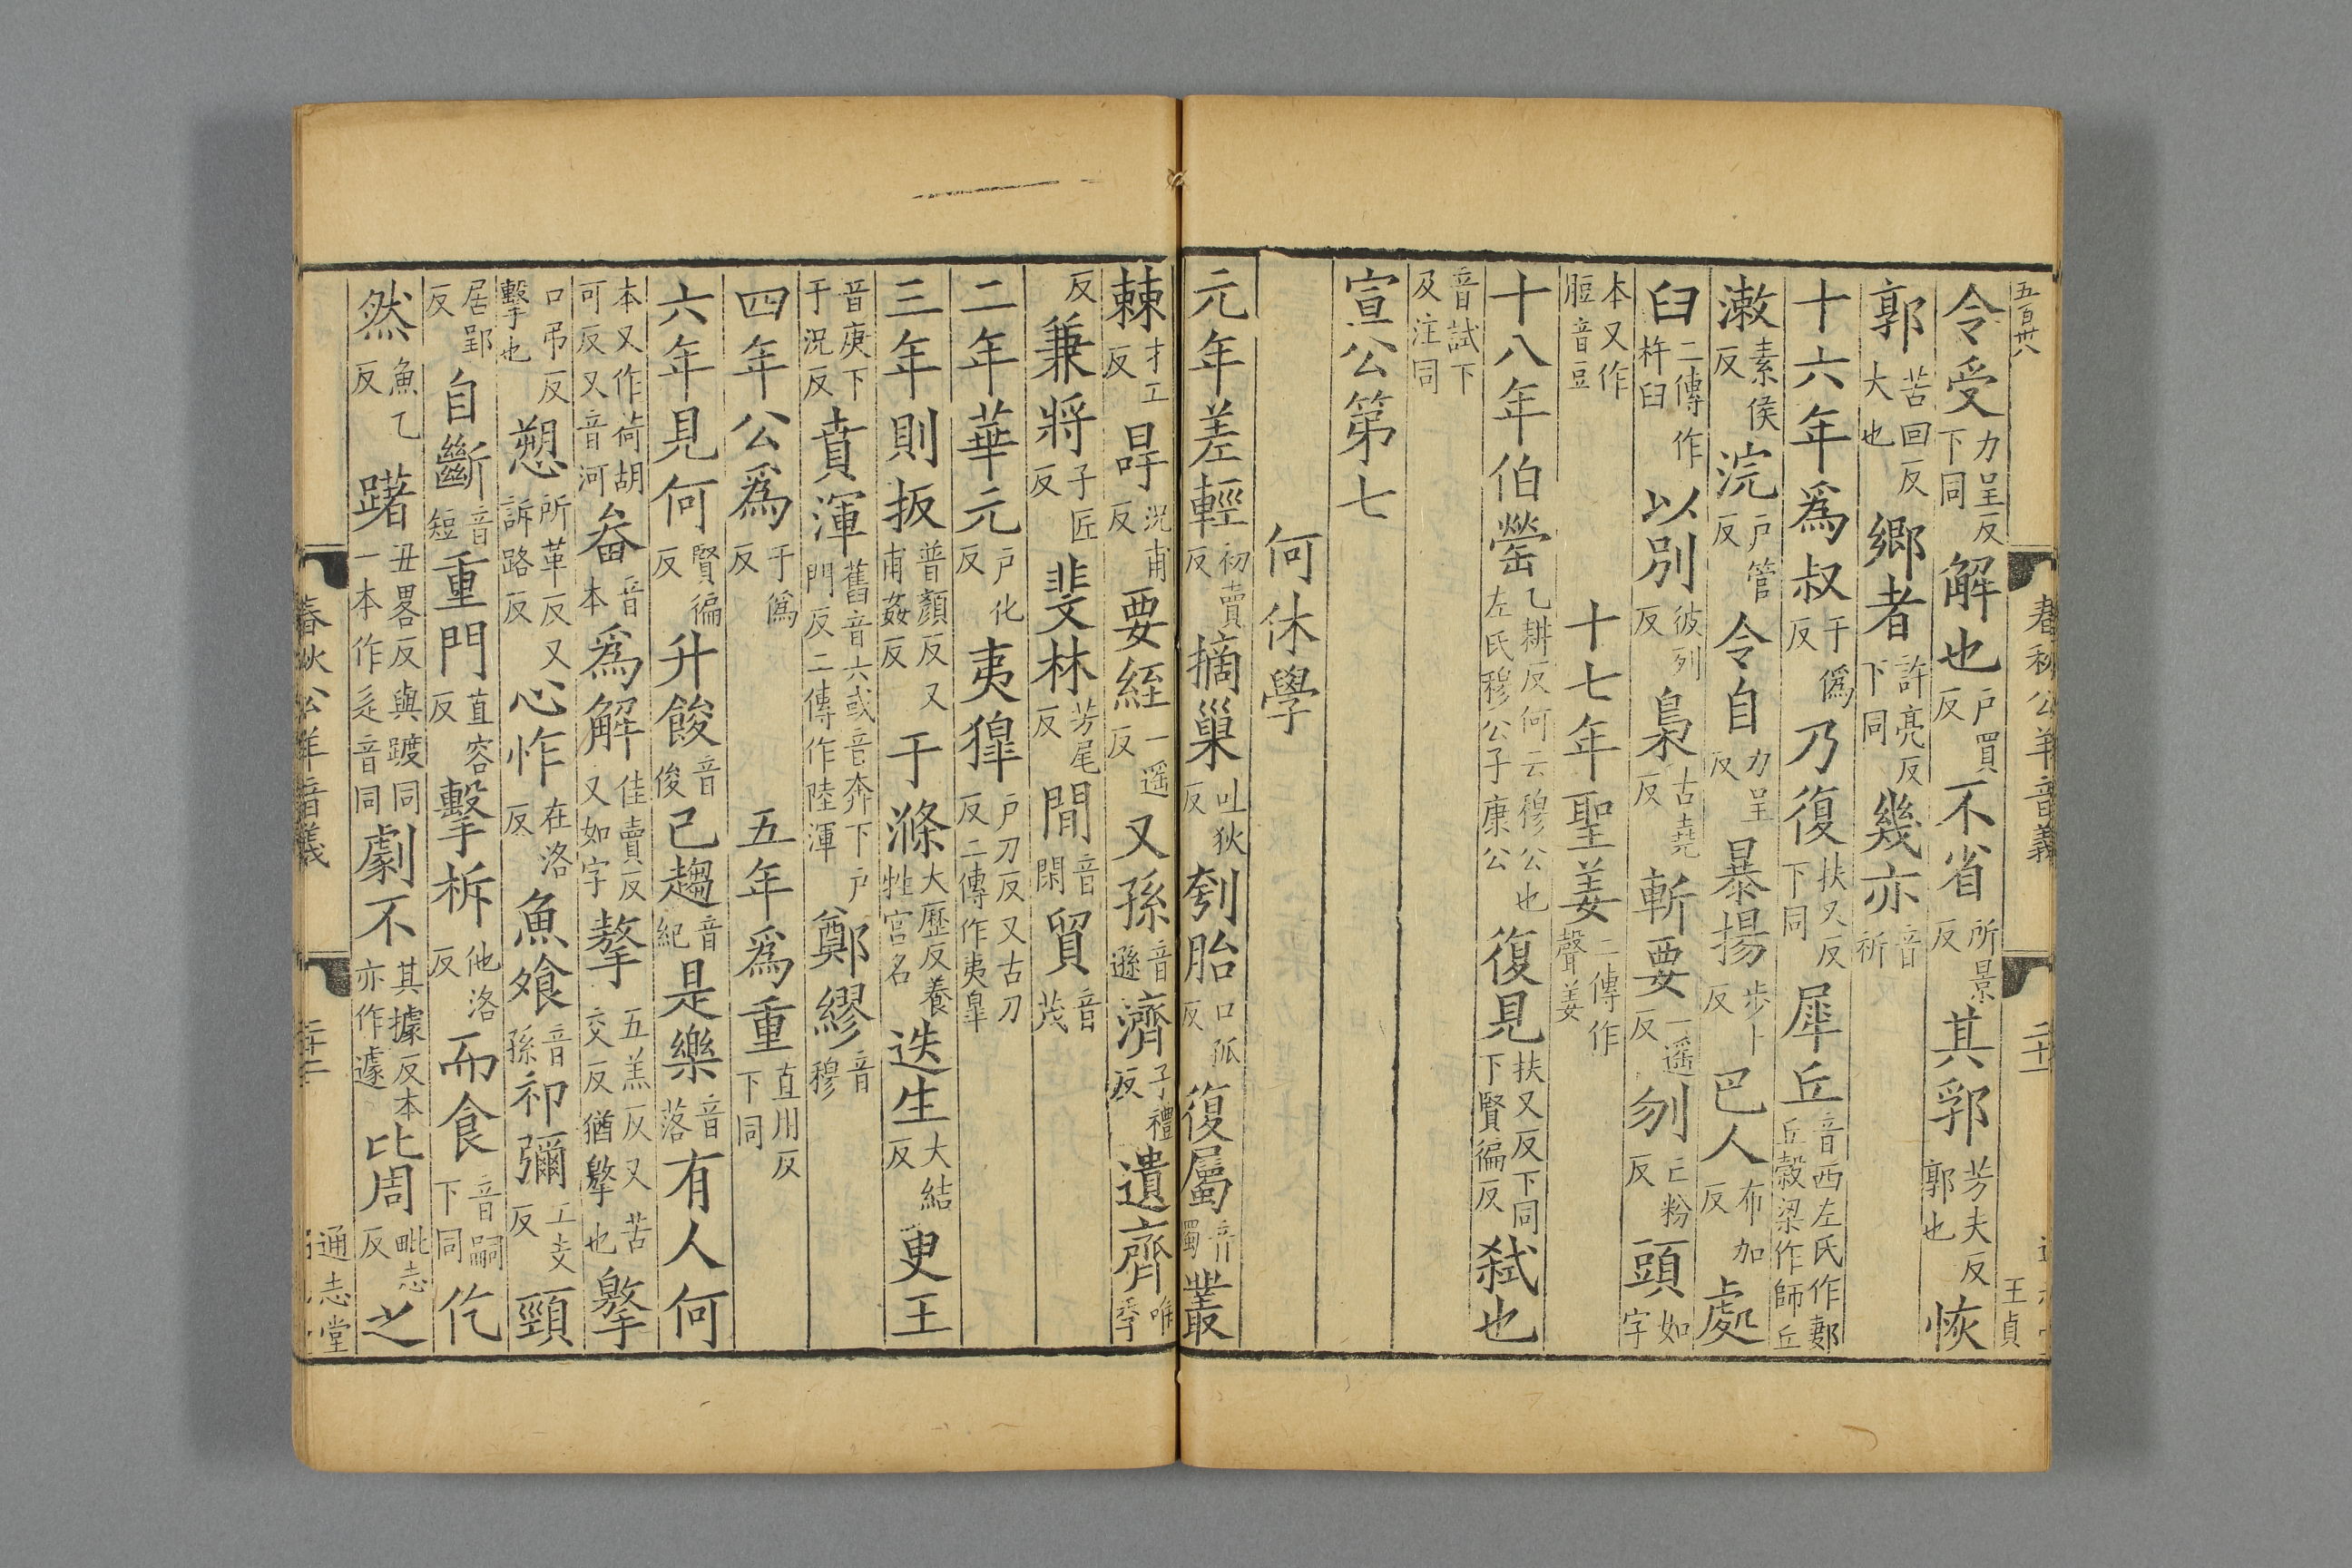 五百卅八
春秋公羊音義
二十一
王貞
令受力呈反下同解也戶買反不省所景反其郛芳夫反郭也恢
郭苦回反大也鄉者許亮反下同幾亦音祈
十六年爲叔于僞反乃復扶又反下同犀丘音西左氏作郪丘穀梁作師丘
漱素侯反浣戶管反令自力呈反暴揚步卜反巴人布加反處
臼二傳作杵臼以別彼列反梟古堯反斬要一遥反刎亡粉反頭如字
本又作脰音豆十七年聖姜二傳作聲姜
十八年伯罃乙耕反何云穆公也左氏穆公子康公復見扶又反下同下賢徧反弑也
音試下及注同
宣公第七
何休學
元年差輕初賣反摘巢吐狄反刳胎口孤反復屬音蠲叢
棘才工反冔況甫反要絰一遥反又孫音遜濟子禮反遺齊唯季
反兼將子匠反斐林芳尾反閒音閑貿音茂
二年華元戶化反夷獆戶刀反又古刀反二傳作夷皐
三年則扳普顏反又甫姦反于滌大歷反養牲宮名迭生大結反更王
音庚下于況反賁渾舊音六或音奔下戶門反二傳作陸渾鄭繆音穆
四年公爲于僞反五年爲重直用反下同
六年見何賢徧反升餕音俊己趨音紀是樂音落有人何
本又作荷胡可反又音河畚音本爲解佳賣反又如字摮五羔反又苦交反猶擊也擊
口弔反擊也愬所革反又訴路反心怍在洛反魚飧音孫祁彌工支反頸
居郢反自斷音短重門直容反擊柝他洛反而食音嗣下同仡
然魚乙反躇丑畧反與踱同一本作辵音同劇不其據反本亦作遽比周毗志反之
春秋公羊音義
二十二
通志堂